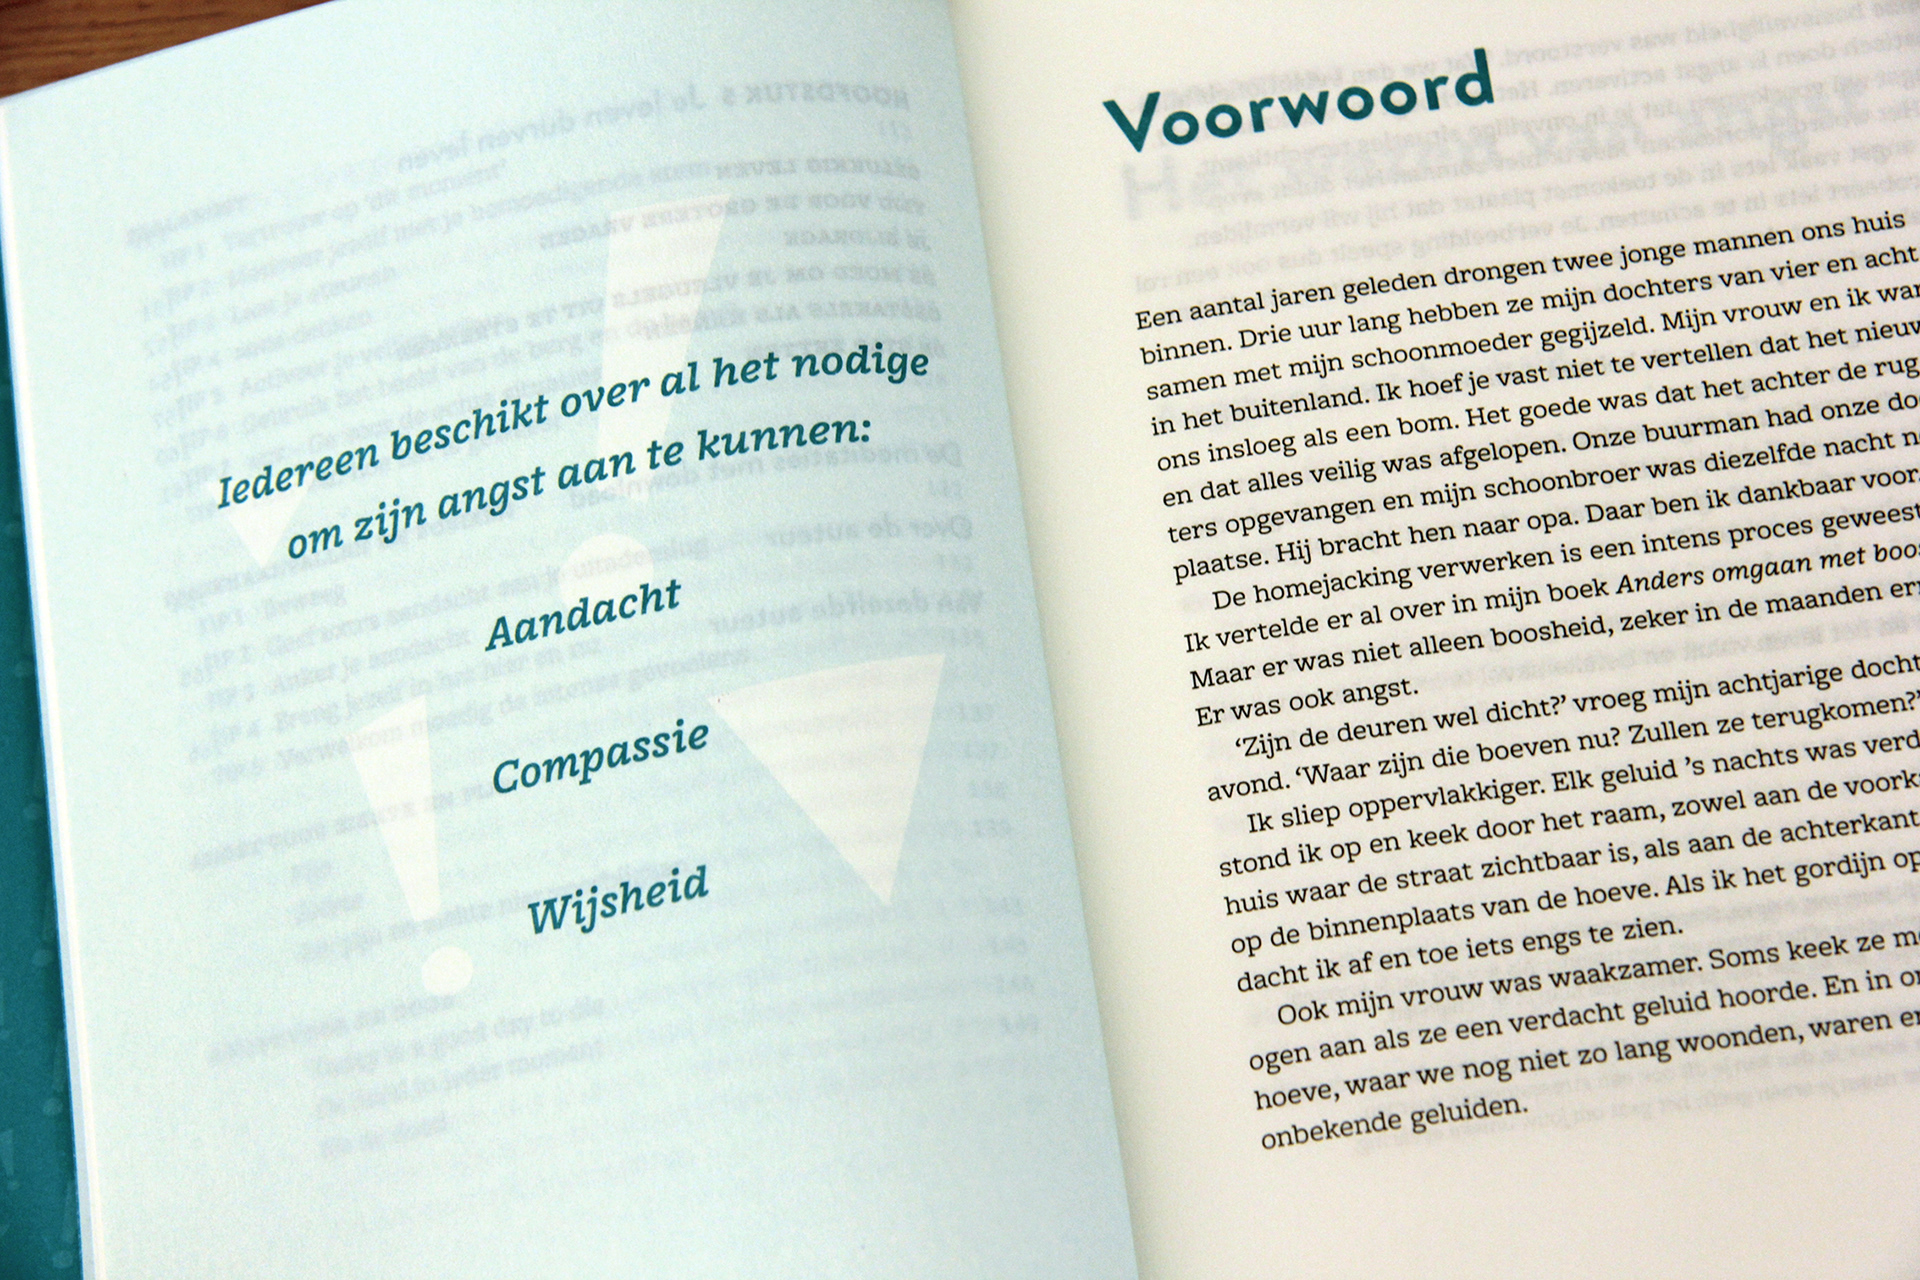 Iedereen beschikt over al het nodige
om zijn angst aan te kunnen:
Aandacht
Compassie
Wijsheid
Voorwoord
Een aantal jaren geleden drongen twee jonge mannen ons huis
binnen. Drie uur lang hebben ze mijn dochters van vier en acht
samen met mijn schoonmoeder gegijzeld. Mijn vrouw en ik
in het buitenland. Ik hoef je vast niet te vertellen dat het
ons insloeg als een bom. Het goede was dat het achter de rug
en dat alles veilig was afgelopen. Onze buurman had onze
ters opgevangen en mijn schoonbroer was diezelfde nacht
plaatse. Hij bracht hen naar opa. Daar ben ik dankbaar voor.
De homejacking verwerken is een intens proces geweest
Ik vertelde er al over in mijn boek Anders omgaan met
Maar er was niet alleen boosheid, zeker in de maanden
Er was ook angst.
‘Zijn de deuren wel dicht?’ vroeg mijn achtjarige
avond. ‘Waar zijn die boeven nu? Zullen ze terugkomen?’
Ik sliep oppervlakkiger. Elk geluid ’s nachts was
stond ik op en keek door het raam, zowel aan de
huis waar de straat zichtbaar is, als aan de achterkant
op de binnenplaats van de hoeve. Als ik het gordijn
dacht ik af en toe iets engs te zien.
Ook mijn vrouw was waakzamer. Soms keek ze
ogen aan als ze een verdacht geluid hoorde. En in
hoeve, waar we nog niet zo lang woonden, waren
onbekende geluiden.